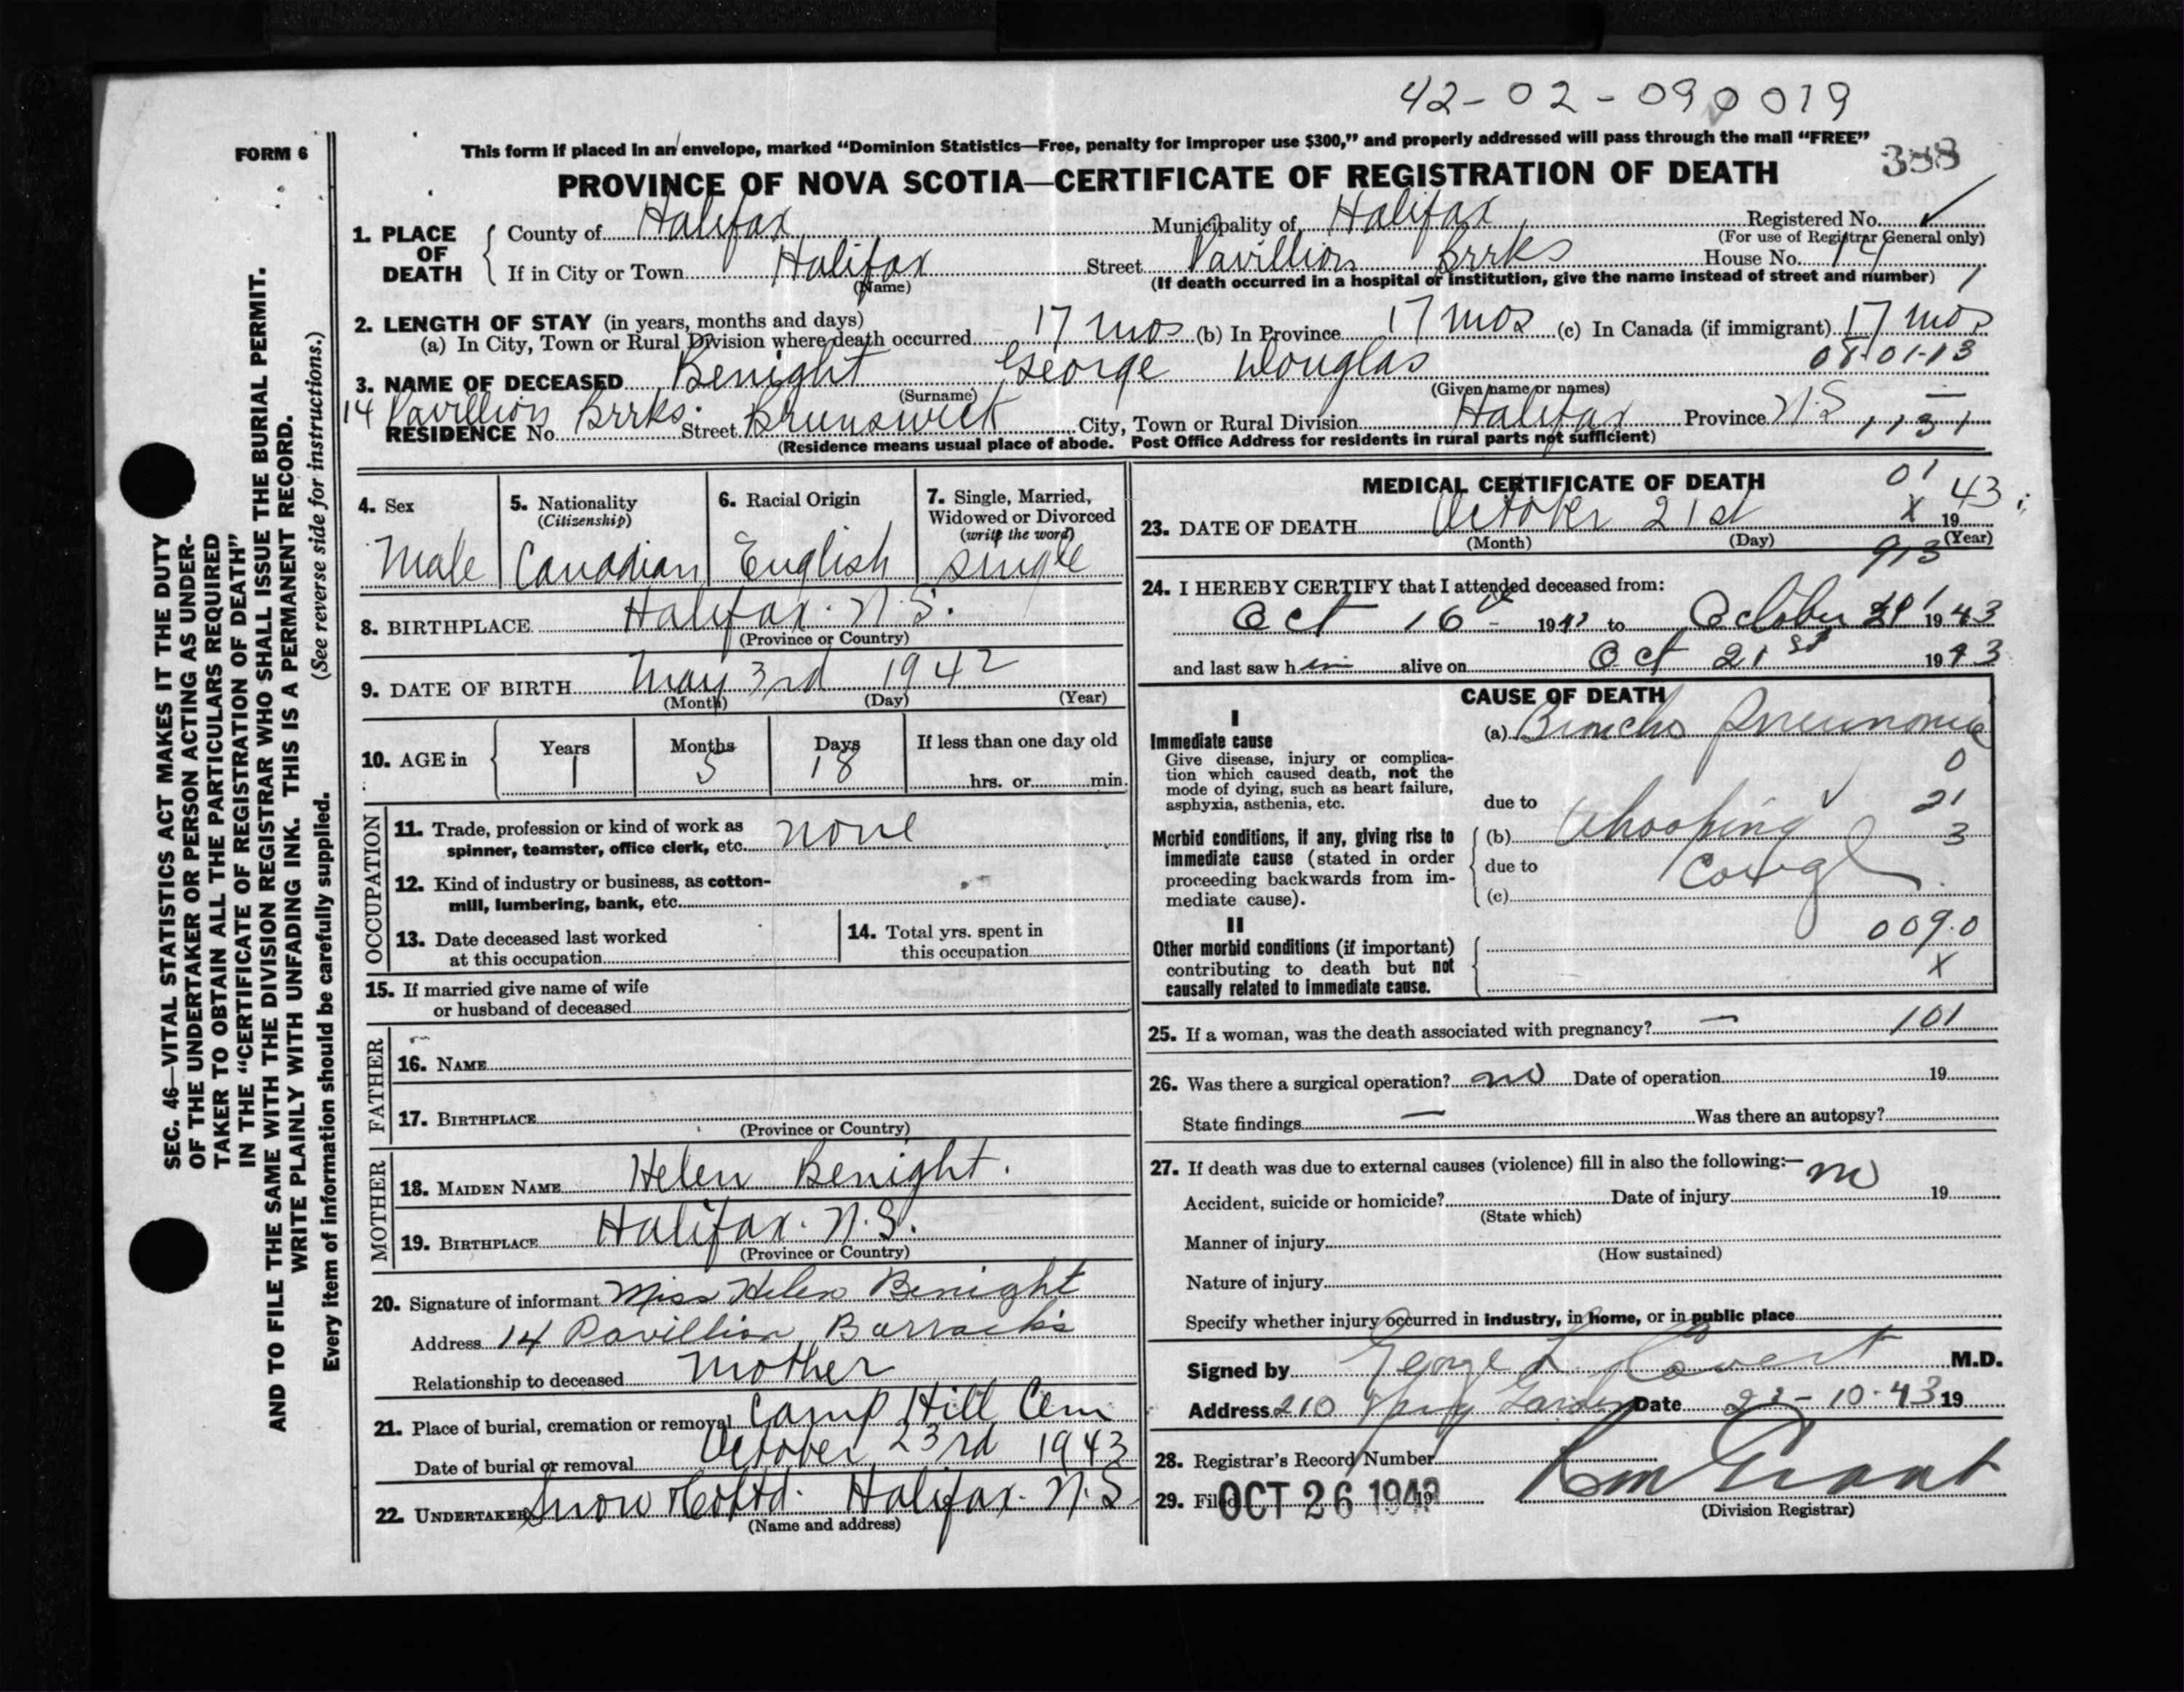 42-02-090019
FORM 6
This form if placed in an envelope, marked “Dominion Statistics—Free, penalty for improper use $300,” and properly addressed will pass through the mail “FREE”
388
PROVINCE OF NOVA SCOTIA—CERTIFICATE OF REGISTRATION OF DEATH
1. PLACE OF DEATH
County of Halifax Municipality of Halifax Registered No. ✓
(For use of Registrar General only)
If in City or Town Halifax Street Pavillion Brrks House No. 14
(Name) (If death occurred in a hospital or institution, give the name instead of street and number) 1
2. LENGTH OF STAY (in years, months and days)
(a) In City, Town or Rural Division where death occurred 17 mos (b) In Province 17 mos (c) In Canada (if immigrant) 17 mos
3. NAME OF DECEASED Benight George Douglas
(Surname) (Given name or names)
14 Pavillion Brrks.
RESIDENCE No. Street Brunswick City, Town or Rural Division Halifax Province N.S
(Residence means usual place of abode. Post Office Address for residents in rural parts not sufficient)
4. Sex
Male
5. Nationality
(Citizenship)
Canadian
6. Racial Origin
English
7. Single, Married,
Widowed or Divorced
(write the word)
single
8. BIRTHPLACE Halifax. N.S.
(Province or Country)
9. DATE OF BIRTH May 3rd 1942
(Month) (Day) (Year)
10. AGE in
Years
1
Months
5
Days
18
If less than one day old
hrs. or min.
OCCUPATION
11. Trade, profession or kind of work as
spinner, teamster, office clerk, etc. none
12. Kind of industry or business, as cotton-
mill, lumbering, bank, etc.
13. Date deceased last worked
at this occupation
14. Total yrs. spent in
this occupation
15. If married give name of wife
or husband of deceased
FATHER
16. NAME
17. BIRTHPLACE
(Province or Country)
MOTHER
18. MAIDEN NAME Helen Benight.
19. BIRTHPLACE Halifax. N.S.
(Province or Country)
20. Signature of informant Miss Helen Benight
Address 14 Pavillion Barracks
Relationship to deceased Mother
21. Place of burial, cremation or removal Camp Hill Cem
Date of burial or removal October 23rd 1943
22. UNDERTAKER Snow & Co Ltd. Halifax. N.S
(Name and address)
MEDICAL CERTIFICATE OF DEATH
01
23. DATE OF DEATH October 21st X 1943
(Month) (Day) (Year)
24. I HEREBY CERTIFY that I attended deceased from:
Oct 16 to October 1943
and last saw him alive on Oct 21st 1943
CAUSE OF DEATH
I
Immediate cause
Give disease, injury or complica-
tion which caused death, not the
mode of dying, such as heart failure,
asphyxia, asthenia, etc.
(a) Broncho Pneumonia
0
due to
21
Morbid conditions, if any, giving rise to
immediate cause (stated in order
proceeding backwards from im-
mediate cause).
(b) Whooping 3
due to Cough
(c)
II
Other morbid conditions (if important)
contributing to death but not
causally related to immediate cause.
009.0
X
25. If a woman, was the death associated with pregnancy? — 101
26. Was there a surgical operation? no Date of operation 19
State findings — Was there an autopsy?
27. If death was due to external causes (violence) fill in also the following:— no
Accident, suicide or homicide? Date of injury 19
(State which)
Manner of injury
(How sustained)
Nature of injury
Specify whether injury occurred in industry, in home, or in public place
Signed by George L Covert M.D.
Address 210 Spring Garden Date 22-10-43 19
28. Registrar's Record Number
29. Filed OCT 26 1943 19
(Division Registrar)
SEC. 46—VITAL STATISTICS ACT MAKES IT THE DUTY
OF THE UNDERTAKER OR PERSON ACTING AS UNDER-
TAKER TO OBTAIN ALL THE PARTICULARS REQUIRED
IN THE “CERTIFICATE OF REGISTRATION OF DEATH”
AND TO FILE THE SAME WITH THE DIVISION REGISTRAR WHO SHALL ISSUE THE BURIAL PERMIT.
WRITE PLAINLY WITH UNFADING INK. THIS IS A PERMANENT RECORD.
Every item of information should be carefully supplied. (See reverse side for instructions.)